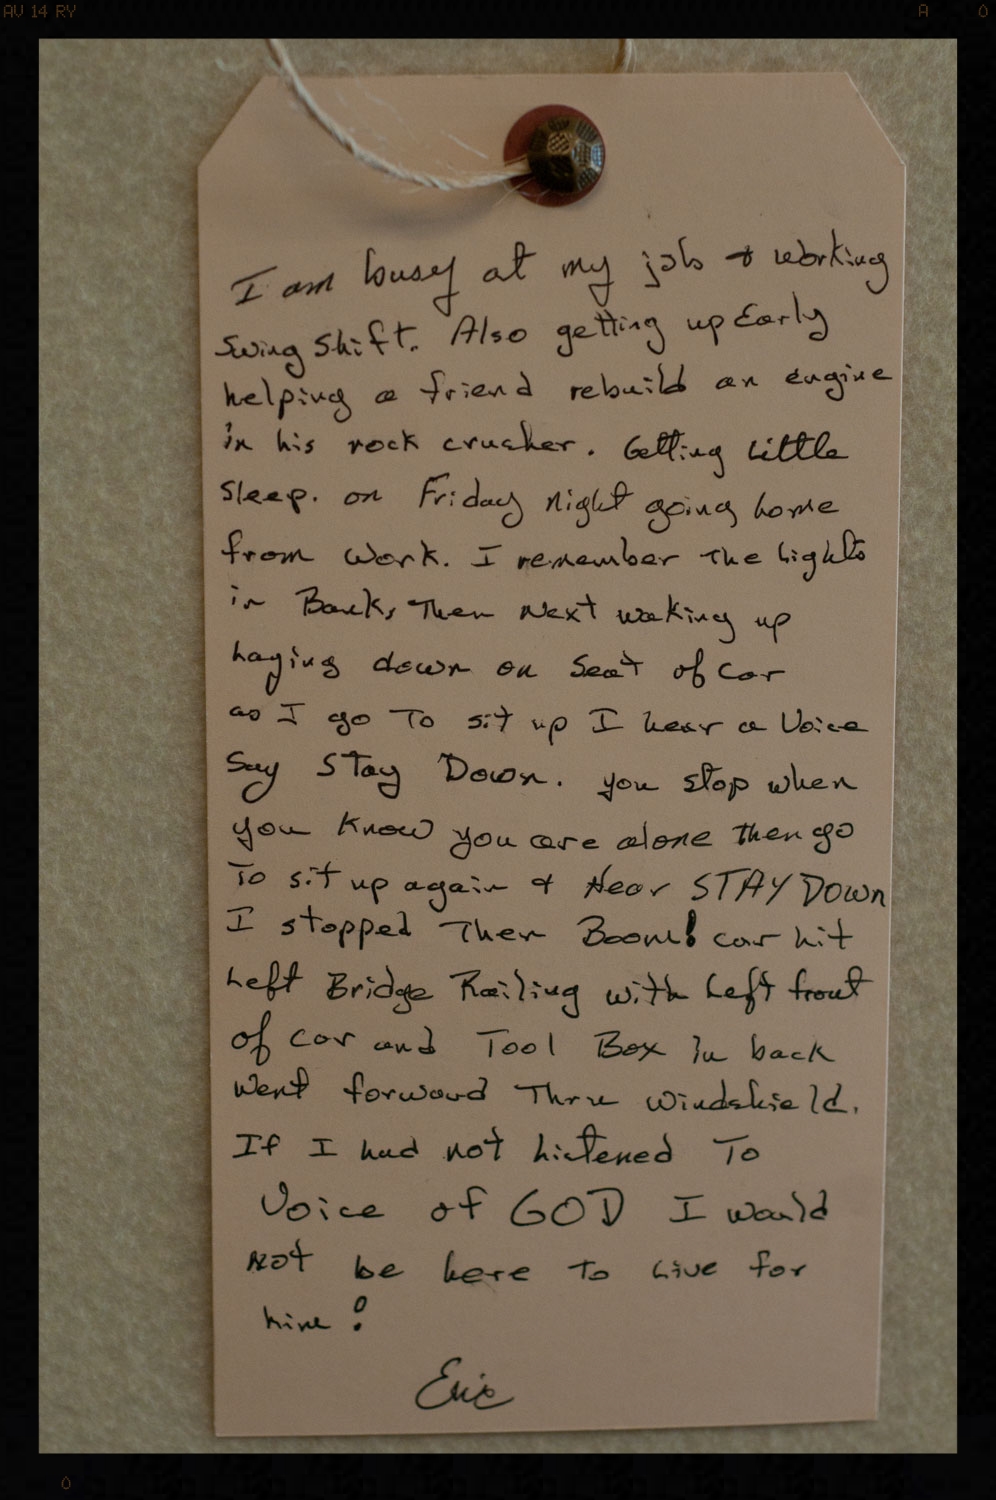 AV 14 RY A 0
I am busy at my job & working
Swing Shift. Also getting up Early
helping a friend rebuild an engine
in his rock crusher. Getting Little
Sleep. on Friday Night going home
from Work. I remember The Lights
in Banks, Then Next waking up
Laying down on Seat of Car
as I go To sit up I hear a Voice
Say Stay Down. you stop when
you Know you are alone Then go
To sit up again & Hear STAY DOWN
I stopped Then Boom! car hit
Left Bridge Railing with Left front
of car and Tool Box In back
Went forward Thru Windshield.
If I had not Listened To
Voice of GOD I would
Not be here To Live for
him!
Eric
0